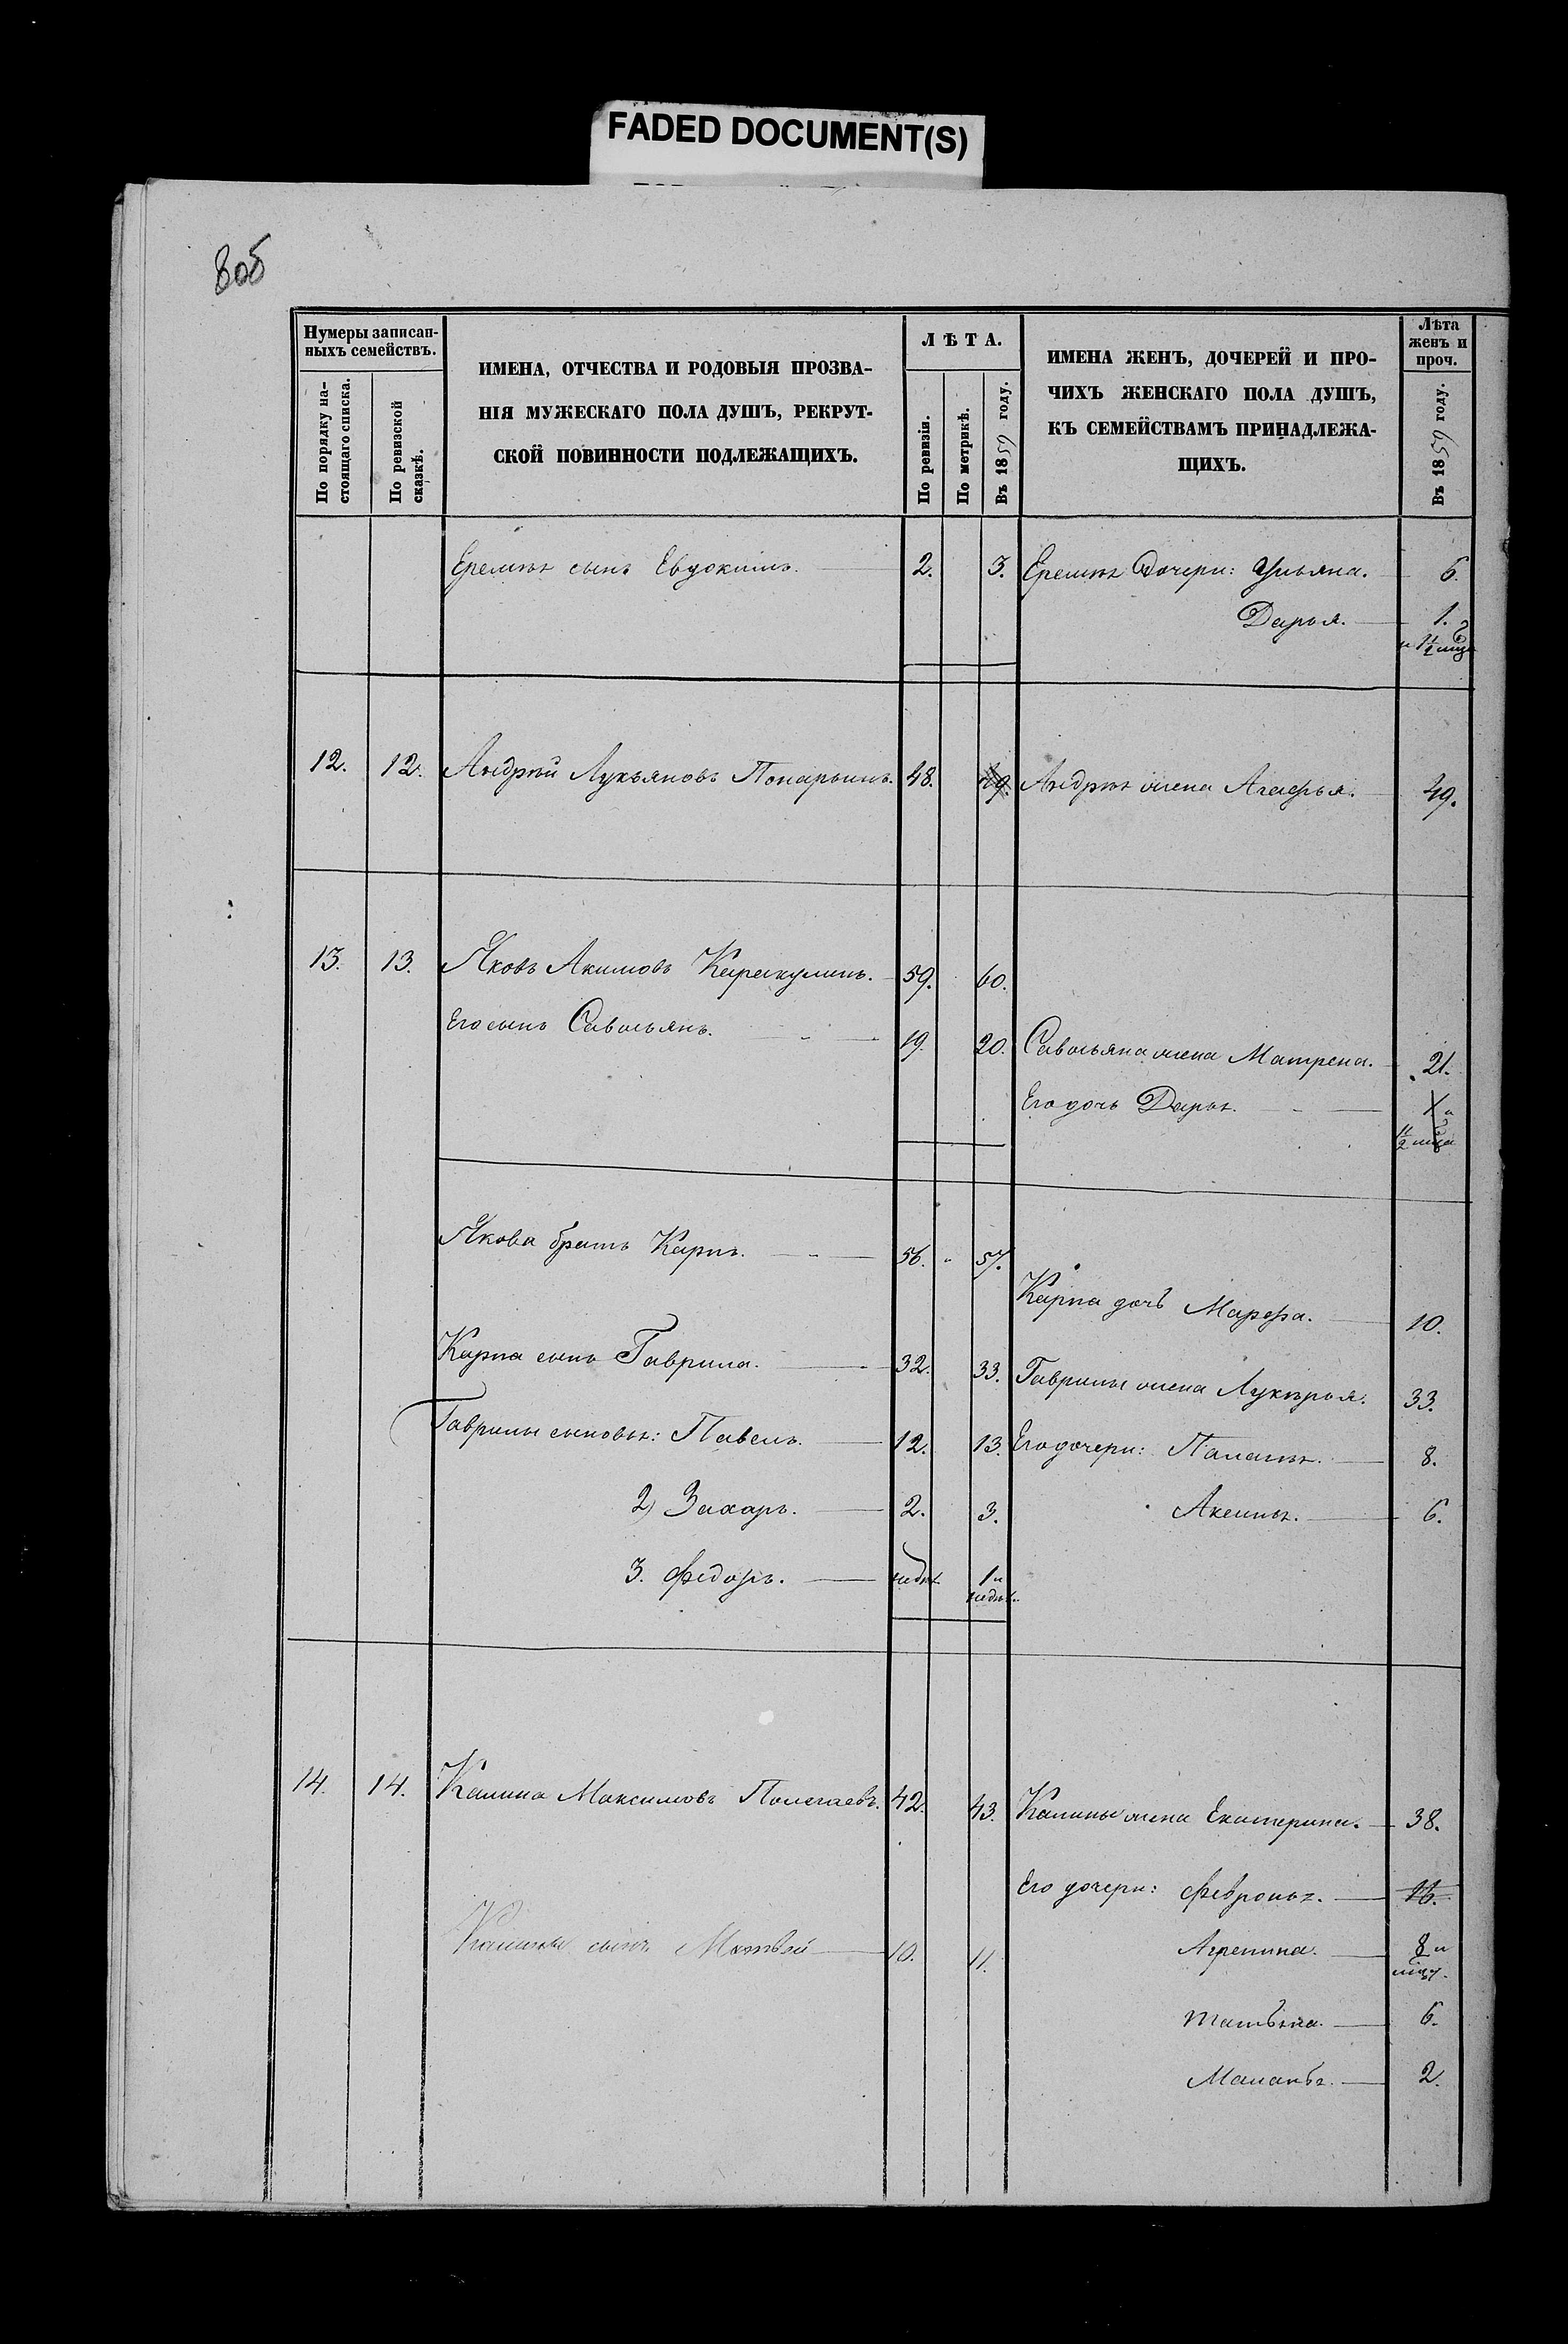 FADED DOCUMENT(S)
808
Нумеры записан-
ныхъ семействъ.
По порядку на-
стоящаго списка.
По ревизской
сказкѣ.
ИМЕНА, ОТЧЕСТВА И РОДОВЫЯ ПРОЗВА-
НІЯ МУЖЕСКАГО ПОЛА ДУШЪ, РЕКРУТ-
СКОЙ ПОВИННОСТИ ПОДЛЕЖАЩИХЪ.
ЛѢТА.
По ревизіи.
По метрикѣ.
Въ 1859 году.
ИМЕНА ЖЕНЪ, ДОЧЕРЕЙ И ПРО-
ЧИХЪ ЖЕНСКАГО ПОЛА ДУШЪ,
КЪ СЕМЕЙСТВАМЪ ПРИНАДЛЕЖА-
ЩИХЪ.
Лѣта
женъ и
проч.
Въ 1859 году.
Еремѣя сынъ Евдокимъ. 2. 3. Еремѣя дочери: Ульяна. 6.
Дарья. 1.
и 1 1/2 мца
12. 12. Андрѣй Лукьяновъ 48. 49 Андрѣя жена Агафья. 49.
13. 13. Яковъ Акимовъ Каракулинъ. 59. 60.
Его сынъ Савосьянъ. 19. 20. Савосьяна жена Матрена. 21.
Его дочь Дарья. 1 и
1/2 мца
Якова братъ Карпъ. 56. 57.
Карпа дочь Марфа. 10.
Карпа сынъ Гаврила. 32. 33. Гаврилы жена Лукерья. 33.
Гаврилы сыновья: Павелъ. 12. 13. Его дочери: Палагея. 8.
2) Захаръ. 2. 3. Аксинья. 6.
3. Федоръ. недѣл 1 и
недѣл.
14. 14. Калина Максимовъ Полегаевъ. 42. 43. Калины жена Екатерина. 38.
Его дочери: Февронья. 16.
Калины сынъ Матвей 10. 11. Агрепина. 8 и
мцъ.
Татьяна. 6.
Маланья. 2.